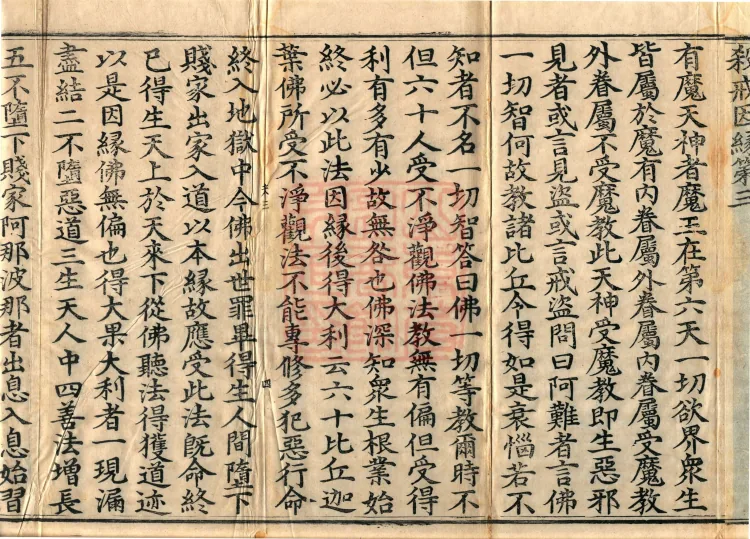 殺戒因緣第三
有魔天神者魔王在第六天一切欲界衆生
皆屬於魔有內眷屬外眷屬內眷屬受魔教
外眷屬不受魔教此天神受魔教即生惡邪
見者或言見盜或言戒盜問曰阿難者言佛
一切智何故教諸比丘令得如是衰惱若不
知者不名一切智答曰佛一切等教爾時不
但六十人受不淨觀佛法教無有偏但受得
利有多有少故無咎也佛深知衆生根業始
終必以此法因緣後得大利云六十比丘迦
葉佛所受不淨觀法不能專修多犯惡行命
四
終入地獄中今佛出世罪畢得生人間墮下
賤家出家入道以本緣故應受此法既命終
已得生天上於天來下從佛聽法得獲道迹
以是因緣佛無偏也得大果大利者一現漏
盡結二不墮惡道三生天人中四善法增長
五不墮下賤家阿那波那者出息入息始習